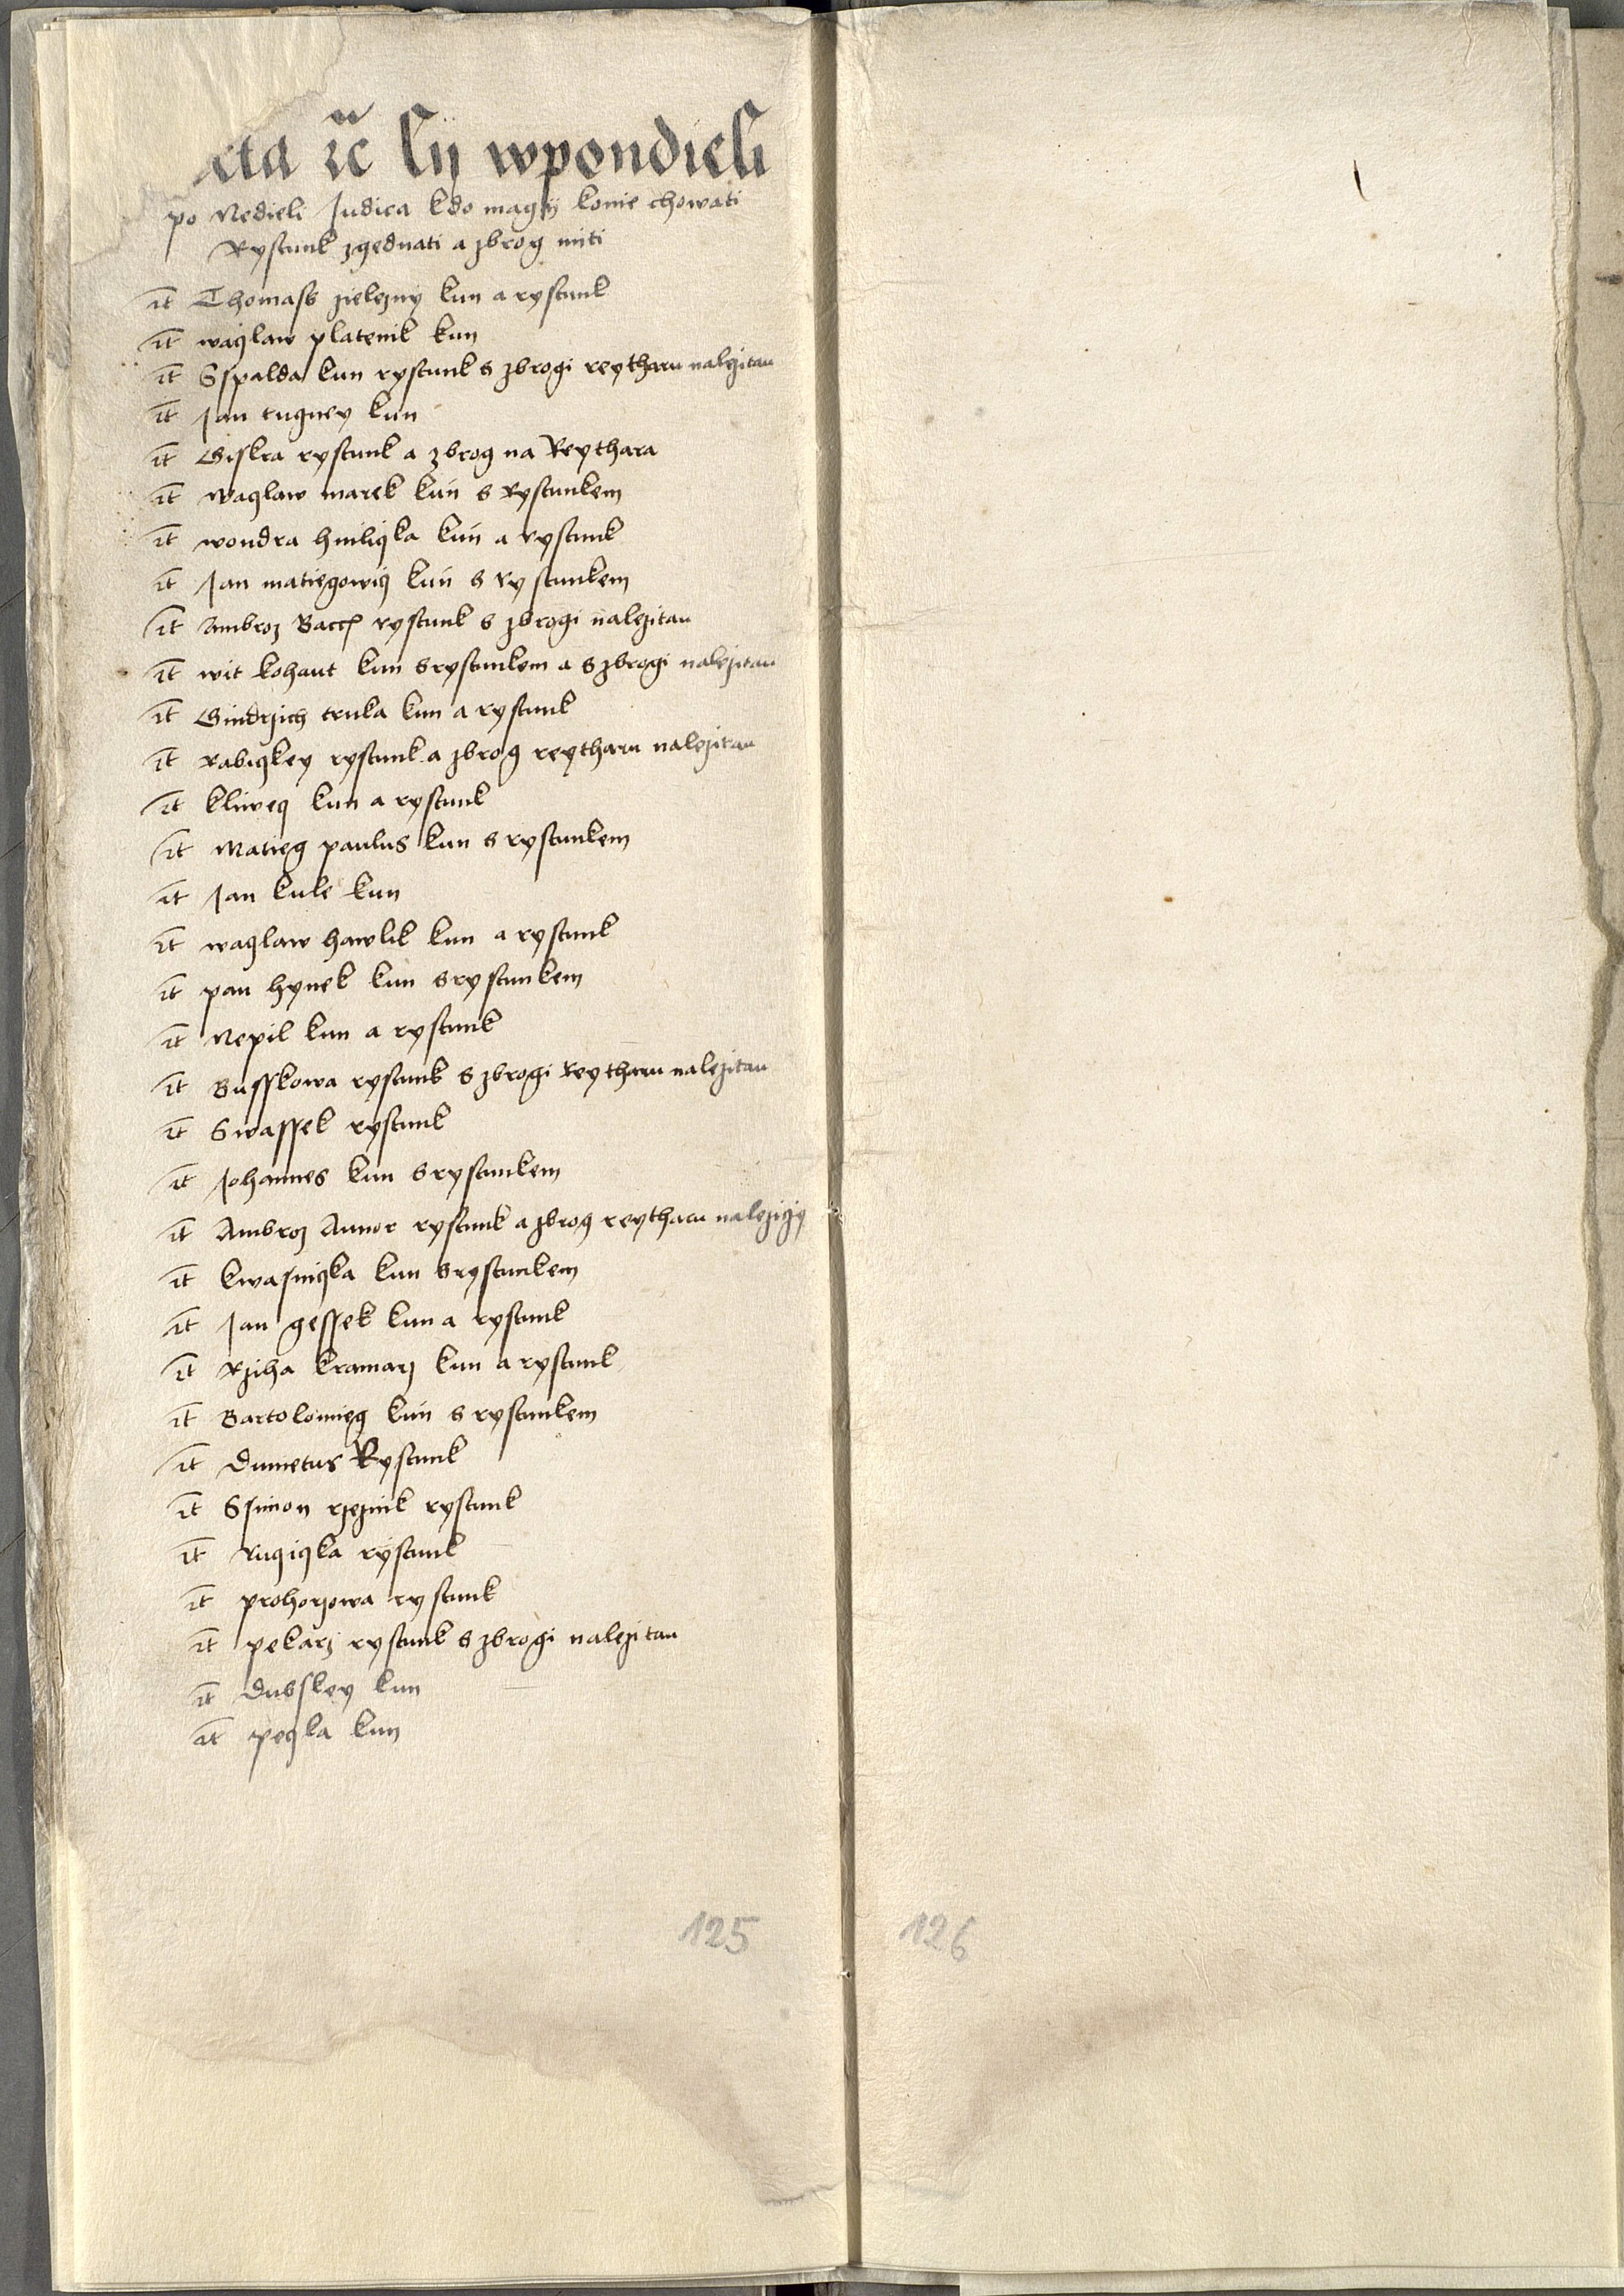 cta ꝛc̃ lij wpondieli
po Nedieli Judica kdo magij konie chowati
Rystunk zgednati a zbrog miti
it Thomass zieleznӱ kun a rystunk
it waczlaw platenik kun
it Sspalda kun rystunk s zbrogi reytharu nalezitau
it Jan tugney kun
it Giskra rystunk a zbrog na Reythara
it waczlaw marek kuń s Rystunkem
it wondra hniliczka kuń a rystunk
it Jan matiegowicz kuń s rystunkem
it Ambroz rystunk s zbrogi nalezitau
it wit kohaut kun s rystunkem a s zbrogi nalezitau
it Gindrzich truka kun a rystunk
it rabiczkey rystunk a zbrog reytharu nalezitau
it kun a rystunk
it Matieg paulus kun s rystunkem
it Jan kule kun
it waczlaw hawlik kun a rystunk
it pan hynek kun s rystunkem
it Nepil kun a rystunk
it Busskowa rystunk s zbrogi Reytharu nalezitau
it Swassek rystunk
it Johannes kun s rystunkem
it Ambroz rystunk a zbrog reytharu nalezitey
it kwasniczka kun s rystunkem
it Jan gessek kun a rystunk
it Rziha kramarz kun a rystunk
it Bartolomieg kuń s rystunkem
it Rystunk
it Ssimon rzeznik rystunk
it Rucziczka rystunk
it prohorzowa rystunk
it pekarz rystunk s zbrogi nalezitau
it dubskey kun
it peczka kun
125
126